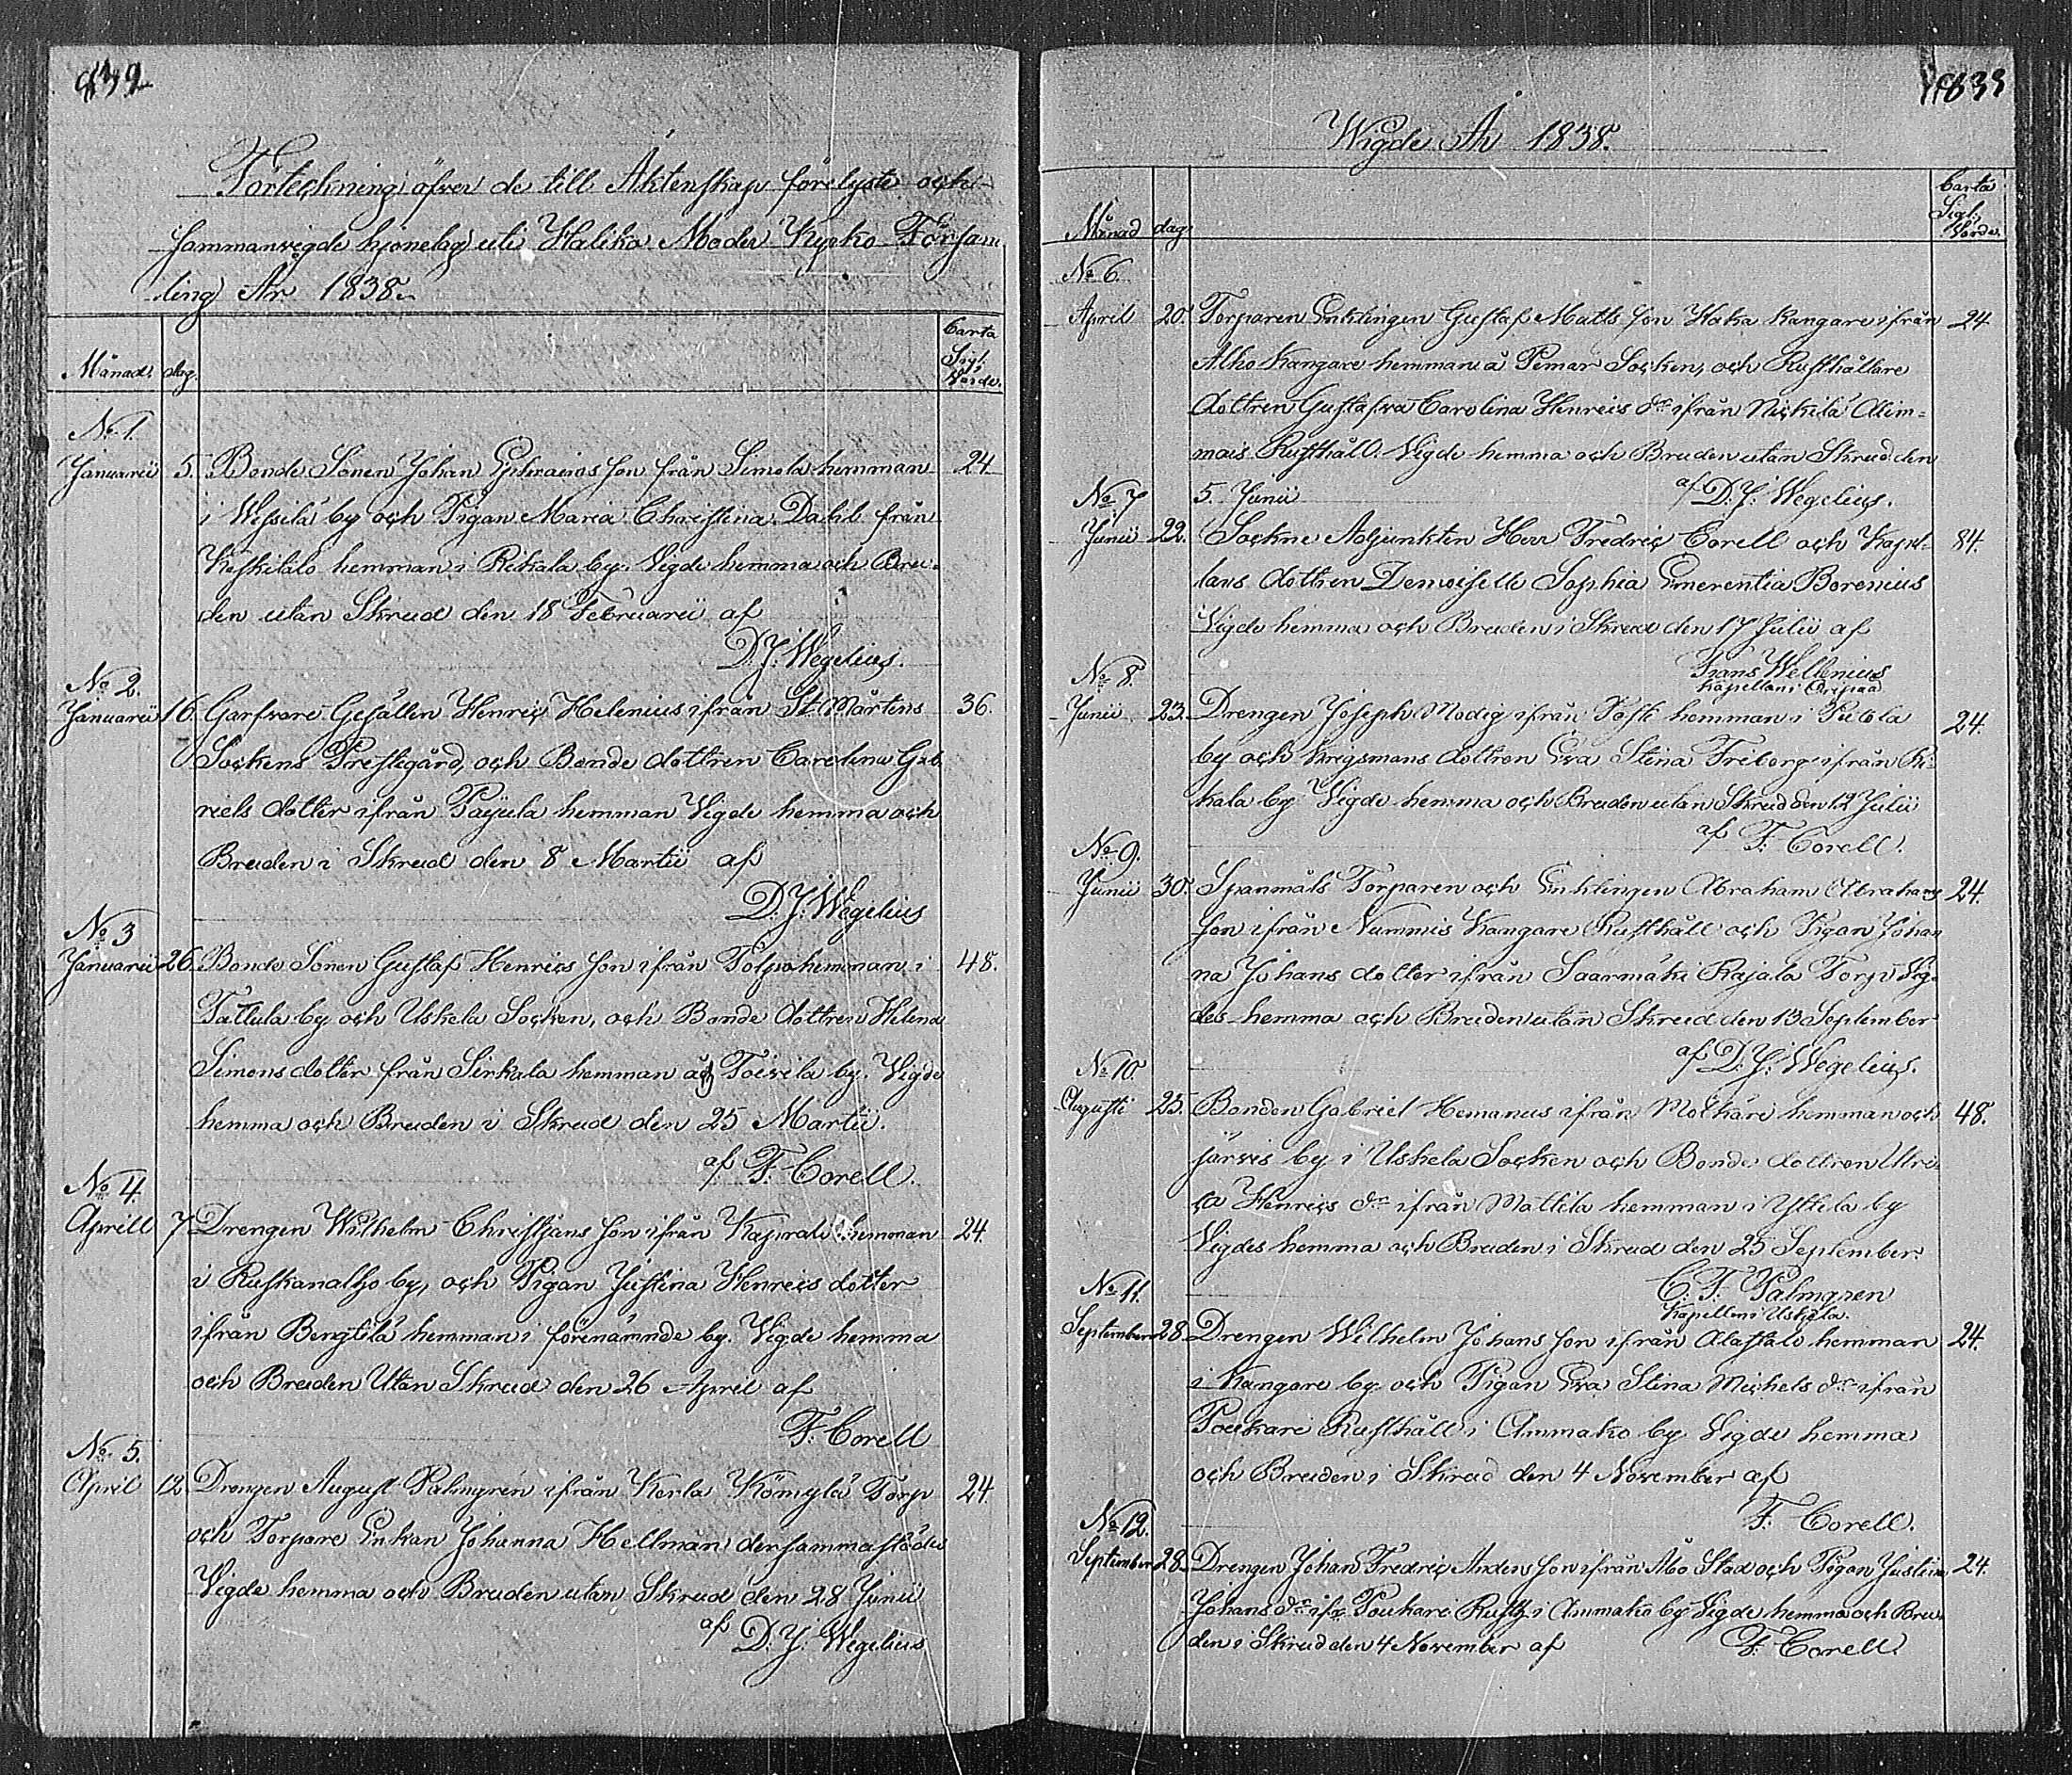 Förteckning öfver de till Äktenskap förelyste och
sammanvigde hjonelag uti Haliko Moder Kyrko Försam
ling År 1838.
Månad. dag. Carta Sigl. Värde.
No 1.
Januarii 5. Bonde Sonen Johan Ephraims Son från Simola hemman 24
i Wessilä by och Pigan Maria Christina Dahl från
Keskitalo hemman i Rikala by. Vigde hemma och Bru-
den utan Skrud den 18 Februarii af
D. J. Wegelius.
No 2.
Januarii 16. Garfvare Gesällen Henric Helenius ifrån St Mårtens 36.
Sockens Prestegård, och Bonde dottren Carolina Gab
riels dotter ifrån Päyula hemman Vigde hemma och
Bruden i Skrud den 8 Martii af
D. J. Wegelius
No 3
Januarii 26. Bonde Sonen Gustaf Henrics Son ifrån Tolpo hemman i 48.
Tattula by och Uskela Socken, och Bonde dottren Helena
Simons dotter från Sirkala hemman Toivila by. Vigde
hemma och Bruden i Skrud den 25 Martii.
af F. Corell.
No 4.
Aprill 7 Drengen Wilhelm Christians Son ifrån Kaprali hemman 24.
i Ruskanalho by, och Pigan Justina Henrics dotter
ifrån Bengtilä hemman i förenämnde by. Vigde hemma
och Bruden Utan Skrud den 26 April af
F. Corell
No 5.
April 12 Drengen August Palmgren ifrån Kerla Kömylä Torp 24.
och Torpare Enkan Johanna Hellman dersammastädes
Vigde hemma och Bruden utan Skrud den 28 Junii
af D. J. Wegelius
Wigde År 1838.
Månad dag. Carta Sigl. Värde.
No 6.
April 20. Torparen Enklingen Gustaf Matts Son Haka Kangare ifrån 24
Alho Kangare hemman å Pemar Socken, och Rusthållare
dottren Gustafva Carolina Henrics dr ifrån Nickilä Aim-
mais Rusthåll. Vigde hemma och Bruden utan Skrud den
5. Junii af D. J. Wegelius.
No 7
Junii 22. Sockne Adjunkten Herr Fredric Corell och Kapel- 84.
lans dottren Demoiselle Sophia Emerentia Borenius
Vigde hemma och Bruden i Skrud den 17 Julii af
Frans Wellenius
Kapellan i
No 8.
Junii 23. Drengen Joseph Modig ifrån Tosti hemman i Putola 24.
by och Krigsmans dottren Eva Stina Friborg ifrån Ri-
kala by Vigde hemma och Bruden utan Skrud den 12 Julii
af F. Corell.
No 9.
Junii 30. Spanmåls Torparen och Enklingen Abraham Abrahams 24.
Son ifrån Nummis Kangare Rusthåll och Pigan Johan
na Johans dotter ifrån Saarmäki Rajala Torp Vig-
des hemma och Bruden utan Skrud den 13 September
af D. J. Wegelius.
No 10.
Augusti 25. Bonden Gabriel Hemanus ifrån Molkäre hemman och 48.
järvis by i Uskela Socken och Bonde dottren Ulri-
ca Henrics dr ifrån Mattila hemman i Yttela by
Vigdes hemma och Bruden i Skrud den 25 September.
C. F. Palmgren
Kapellan i Uskela.
No 11.
September 28. Drengen Wilhelm Johans Son ifrån Alastalo hemman 24.
i Kangare by och Pigan Eva Stina Michels dr ifrån
Poukare Rusthåll i Ammako by Vigde hemma
och Bruden i Skrud den 4 November af
F. Corell.
No 12.
September 28. Drengen Johan Fredric Anders Son ifrån Åbo Stad och Pigan Justina 24.
Johans dr ifr Poukare Rusth i Ammako by Vigde hemma och Bru-
den i Skrud den 4 November af F. Corell.